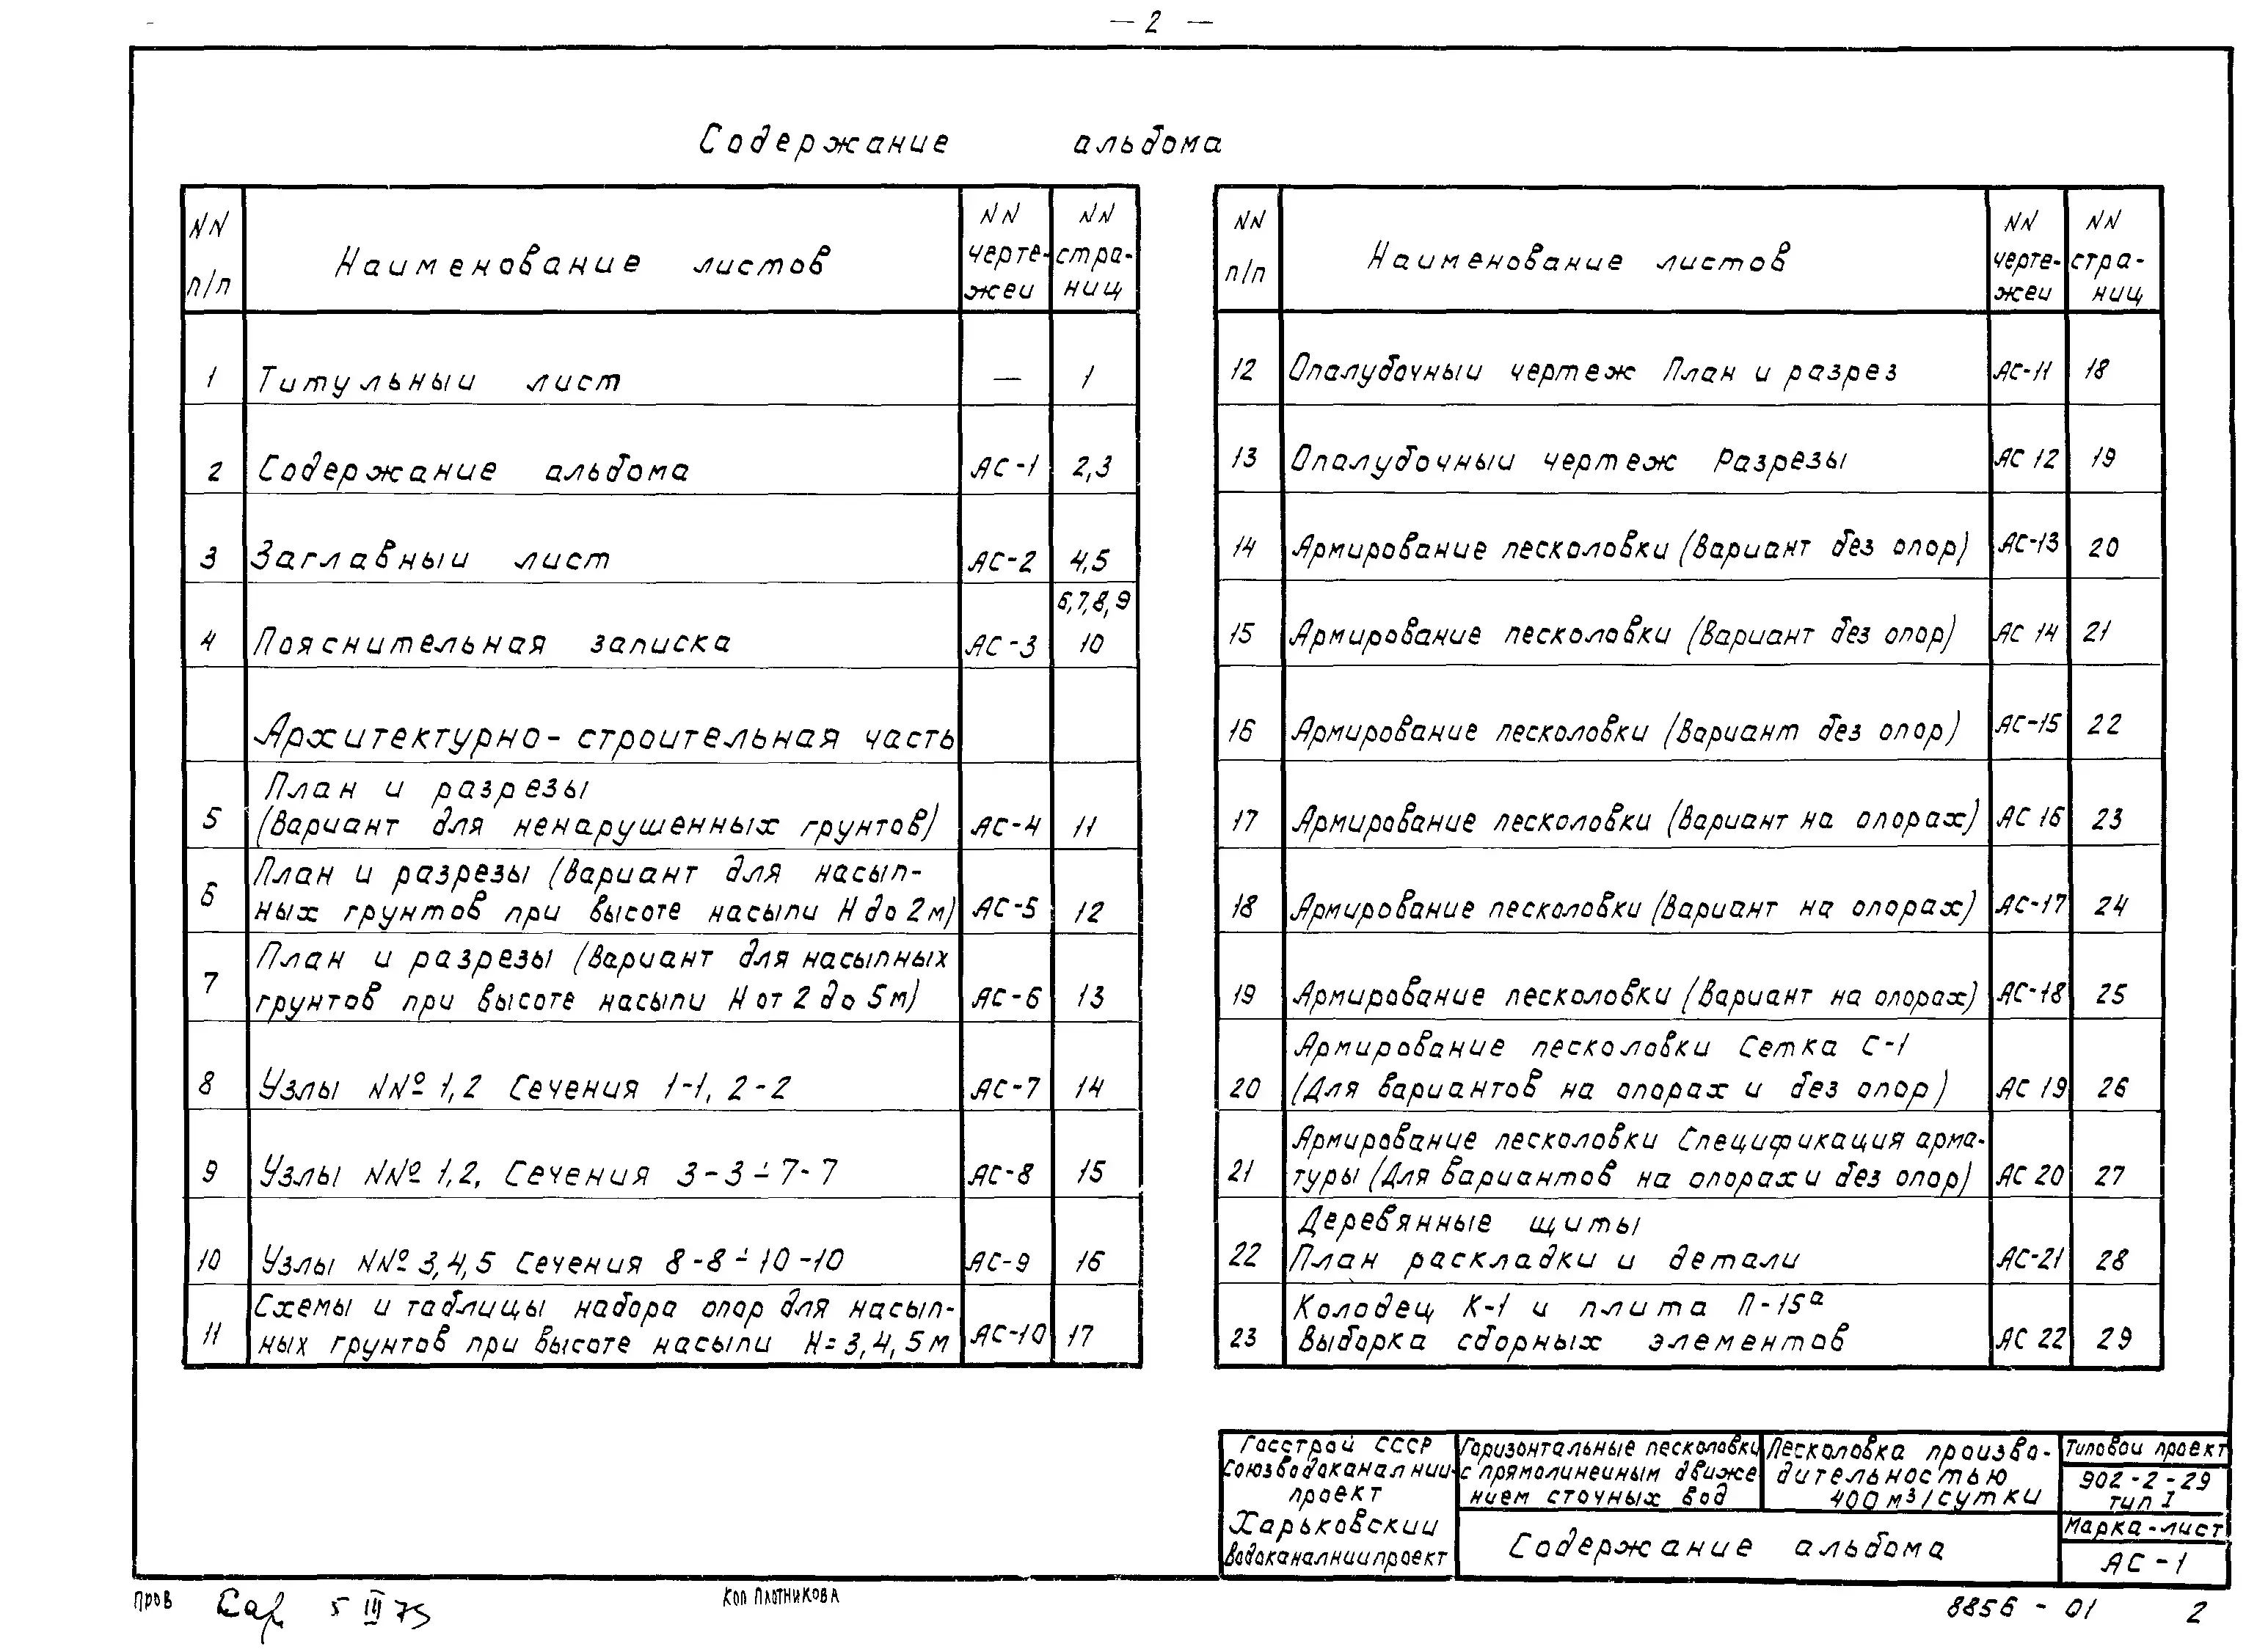 — 2 —
Содержание альбома
NN п/п Наименование листов NN чертежей NN страниц
1 Титульный лист — 1
2 Содержание альбома АС-1 2,3
3 Заглавный лист АС-2 4,5
6,7,8,9
4 Пояснительная записка АС-3 10
Архитектурно-строительная часть
План и разрезы
5 (Вариант для ненарушенных грунтов) АС-4 11
План и разрезы (Вариант для насып-
6 ных грунтов при высоте насыпи Н до 2м) АС-5 12
План и разрезы (Вариант для насыпных
7 грунтов при высоте насыпи Н от 2 до 5м) АС-6 13
8 Узлы NNº 1,2 Сечения 1-1, 2-2 АС-7 14
9 Узлы NNº 1,2, Сечения 3-3÷7-7 АС-8 15
10 Узлы NNº 3,4,5 Сечения 8-8÷10-10 АС-9 16
Схемы и таблицы набора опор для насып-
11 ных грунтов при высоте насыпи Н=3,4,5м АС-10 17
NN п/п Наименование листов NN чертежей NN страниц
12 Опалубочный чертеж План и разрез АС-11 18
13 Опалубочный чертеж Разрезы АС 12 19
14 Армирование песколовки (Вариант без опор) АС-13 20
15 Армирование песколовки (Вариант без опор) АС 14 21
16 Армирование песколовки (Вариант без опор) АС-15 22
17 Армирование песколовки (Вариант на опорах) АС 16 23
18 Армирование песколовки (Вариант на опорах) АС-17 24
19 Армирование песколовки (Вариант на опорах) АС-18 25
Армирование песколовки Сетка С-1
20 (Для вариантов на опорах и без опор) АС 19 26
Армирование песколовки Спецификация арма-
21 туры (Для вариантов на опорах и без опор) АС 20 27
Деревянные щиты
22 План раскладки и детали АС-21 28
Колодец К-1 и плита П-15а
23 Выборка сборных элементов АС 22 29
Госстрой СССР
Союзводоканалнии-
проект
Харьковский
Водоканалниипроект
Горизонтальные песколовки
с прямолинейным движе
нием сточных вод
Песколовка произво-
дительностью
400 м³/сутки
Типовой проект
902-2-29
тип I
Содержание альбома
Марка-лист
АС-1
пров 5 III 75
Коп Плотникова
8856-01 2